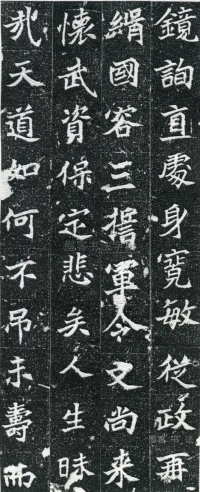 鏡詢直處身寬敏從政再
緝國容三撫軍令文尚来
懷武資保定悲矣人生昧
㢤天道如何不吊未壽而